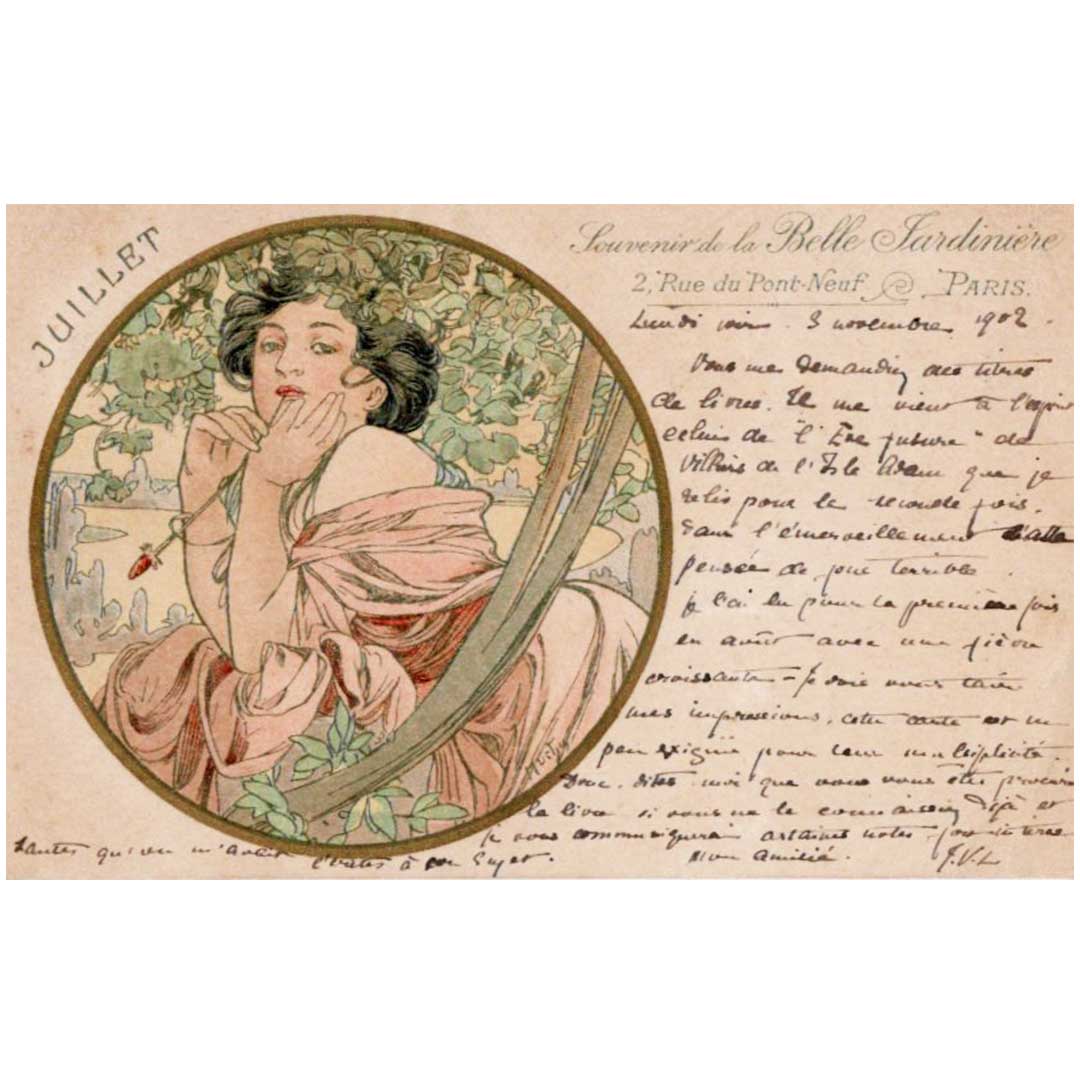 JUILLET
Souvenir de la Belle Jardinière
2, Rue du Pont-Neuf PARIS.
Lundi soir. 3 novembre 1902.
Vous me demandiez des titres
de livres. Il me vient à l'esprit
celui de "l'Ève future" de
Villiers de l'Isle Adam que je
relis pour la seconde fois.
dans l'émerveillement
pensée de terrible
je l'ai lu pour la première fois
en août avec une fièvre
croissante - Je dois vous taire
mes impressions, cette carte est un
peu exiguë pour leur multiplicité.
Donc, dites-moi que vous vous êtes procuré
le livre si vous ne le connaissez déjà et
je vous communiquerai certaines notes
Mon amitié. J.V.L
qu'on m'avait à son sujet.
Mucha